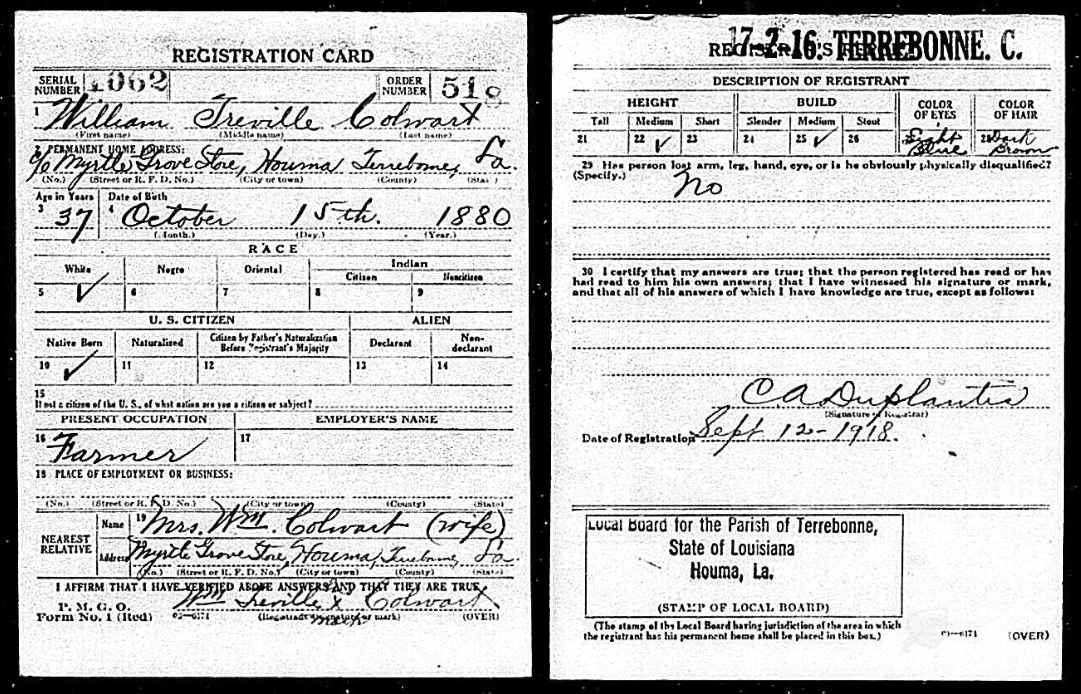 REGISTRATION CARD
SERIAL NUMBER 1062 ORDER NUMBER 518
1 William Treville Colwart
(First name) (Middle name) (Last name)
2 PERMANENT HOME ADDRESS:
c/o Myrtle Grove Store, Houma Terrebonne, La.
(No.) (Street or R. F. D. No.) (City or town) (County) (State)
Age in Years Date of Birth
3 37 4 October 15th. 1880
(Month.) (Day.) (Year.)
RACE
White Negro Oriental Indian
Citizen Noncitizen
5 ✓ 6 7 8 9
U. S. CITIZEN ALIEN
Native Born Naturalized Citizen by Father's Naturalization Before Registrant's Majority Declarant Non-declarant
10 ✓ 11 12 13 14
15
If not a citizen of the U. S., of what nation are you a citizen or subject?
PRESENT OCCUPATION EMPLOYER'S NAME
16 Farmer 17
18 PLACE OF EMPLOYMENT OR BUSINESS:
(No.) (Street or R. F. D. No.) (City or town) (County) (State)
NEAREST RELATIVE
Name 19 Mrs. Wm. Colwart (wife)
Address Myrtle Grove Store, Houma, Terrebonne, La.
(No.) (Street or R. F. D. No.) (City or town) (County) (State)
I AFFIRM THAT I HAVE VERIFIED ABOVE ANSWERS AND THAT THEY ARE TRUE
P. M. G. O.
Form No. 1 (Red) 03—6171 Wm Treville x Colwart
(Registrant's signature or mark) (OVER)
mark
17-2-16. TERREBONNE. C.
REGISTRAR'S REPORT
DESCRIPTION OF REGISTRANT
HEIGHT BUILD COLOR OF EYES COLOR OF HAIR
Tall Medium Short Slender Medium Stout
21 22 ✓ 23 24 25 ✓ 26 Light Blue 28 Dark Brown
29 Has person lost arm, leg, hand, eye, or is he obviously physically disqualified?
(Specify.) No
30 I certify that my answers are true; that the person registered has read or has
had read to him his own answers; that I have witnessed his signature or mark,
and that all of his answers of which I have knowledge are true, except as follows:
C A Duplantis
(Signature of Registrar)
Date of Registration Sept 12-1918.
Local Board for the Parish of Terrebonne,
State of Louisiana
Houma, La.
(STAMP OF LOCAL BOARD)
(The stamp of the Local Board having jurisdiction of the area in which
the registrant has his permanent home shall be placed in this box.)
03—6171 (OVER)